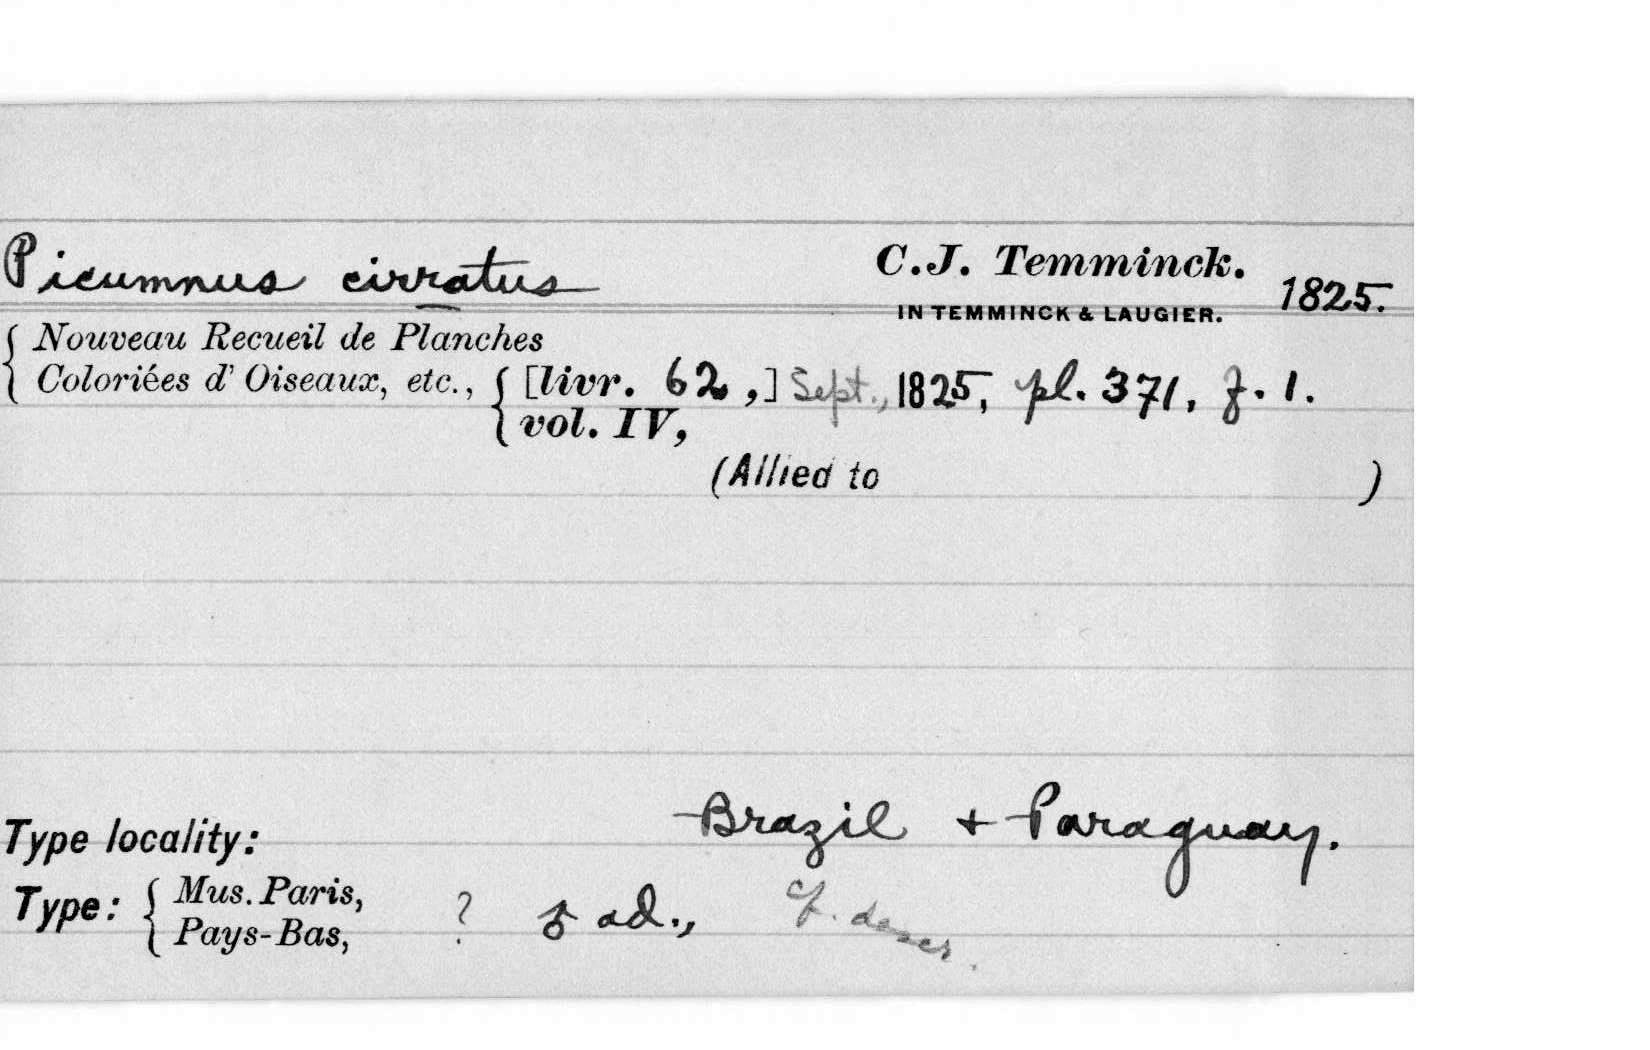 Picumnus cirratus C.J. Temminck. 1825.
IN TEMMINCK & LAUGIER.
{ Nouveau Recueil de Planches
Coloriées d' Oiseaux, etc., { [livr. 62,] Sept., 1825, pl. 371, f. 1.
vol. IV,
(Allied to )
Type locality: Brazil + Paraguay.
Type: { Mus. Paris, ? ♂ ad., cf. descr.
Pays-Bas,